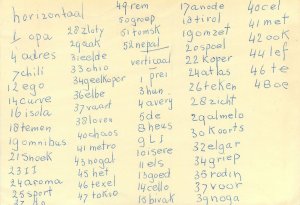 horizontaal
1 opa
4 adres
7 chili
12 ego
14 curve
16 isola
18 temen
19 omnibus
21 snoek
23 II
24 aroma
25 sport
28 zloty
29 aak
31 eelde
33 ohio
34 geelkoper
36 elbe
37 vaart
38 loven
40 chaos
41 metro
43 nogal
45 het
46 texel
47 tokio
49 rem
50 groep
51 tomsk
52 nepal
verticaal
1 prei
3 hun
4 avery
5 de
8 heus
9 LI
10 isere
11 els
13 goed
14 cello
15 bivak
17 anode
18 tirol
19 omzet
20 spoel
22 koper
24 atlas
26 teken
28 zicht
29 almelo
30 koorts
32 elgar
34 griep
35 rodin
37 voor
39 noga
40 cel
41 met
42 ook
44 lef
46 te
48 oe